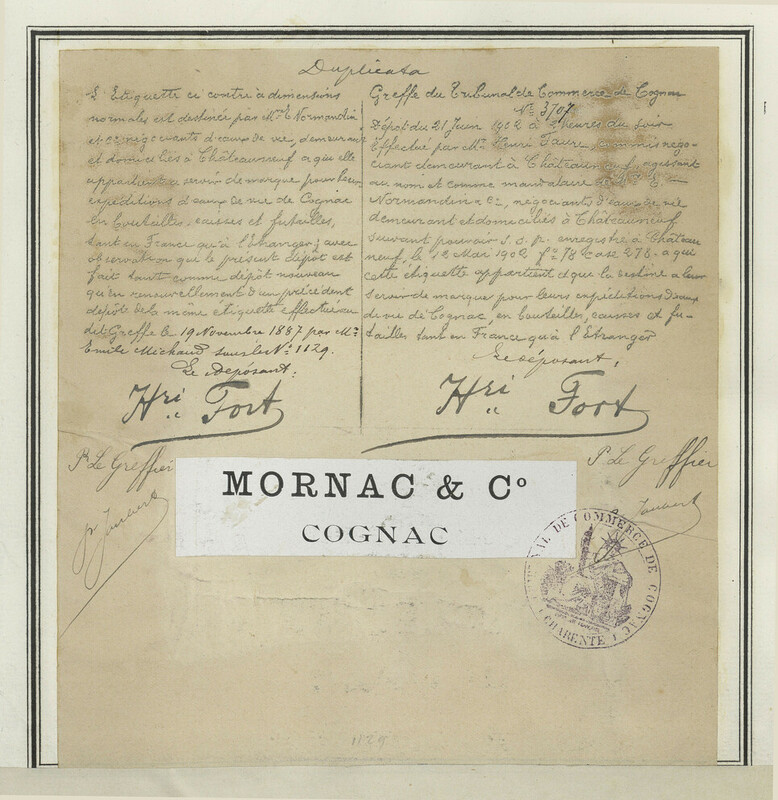 Duplicata
L'Etiquette ci contre à dimensions
normales est destinée par Mrs E. Normandin
et ce négociants d'eaux de vie, demeurant
et domiciliés à Châteauneuf a qui elle
appartient a servir de marque pour leurs
expéditions d'eaux de vie de Cognac
en bouteilles, caisses et futailles,
tant en France qu'à l'étranger; avec
observation que le présent dépôt est
fait tant comme dépôt nouveau
qu'en renouvellement d'un précédent
dépôt de la même étiquette effectué au
dit Greffe le 19 Novembre 1887 par Mr
Emile Michaud sous le No 1129.
Le Déposant:
Hri Fort
Pr Le Greffier
Greffe du Tribunal de Commerce de Cognac
No 3707
Dépôt du 21 Juin 1902 à 2 heures du soir
Effectué par Mr Henri Faure, commis négo-
ciant demeurant à Châteauneuf, agissant
au nom et comme mandataire de Mrs E.
Normandin & ce, négociants d'eaux de vie
demeurant et domiciliés à Châteauneuf
suivant pouvoir s.s.p. enregistré à Château
neuf, le 12 Mai 1902 fo 78 case 278. a qui
cette étiquette appartient et qui la destine a leur
servir de marque pour leurs expéditions d'eaux
de vie de Cognac, en bouteilles, caisses et fu-
tailles tant en France qu'à l'Etranger
Le déposant,
Hri Fort
Pr Le Greffier
MORNAC & Co
COGNAC
TRIBUNAL DE COMMERCE DE COGNAC
(CHARENTE)
1129